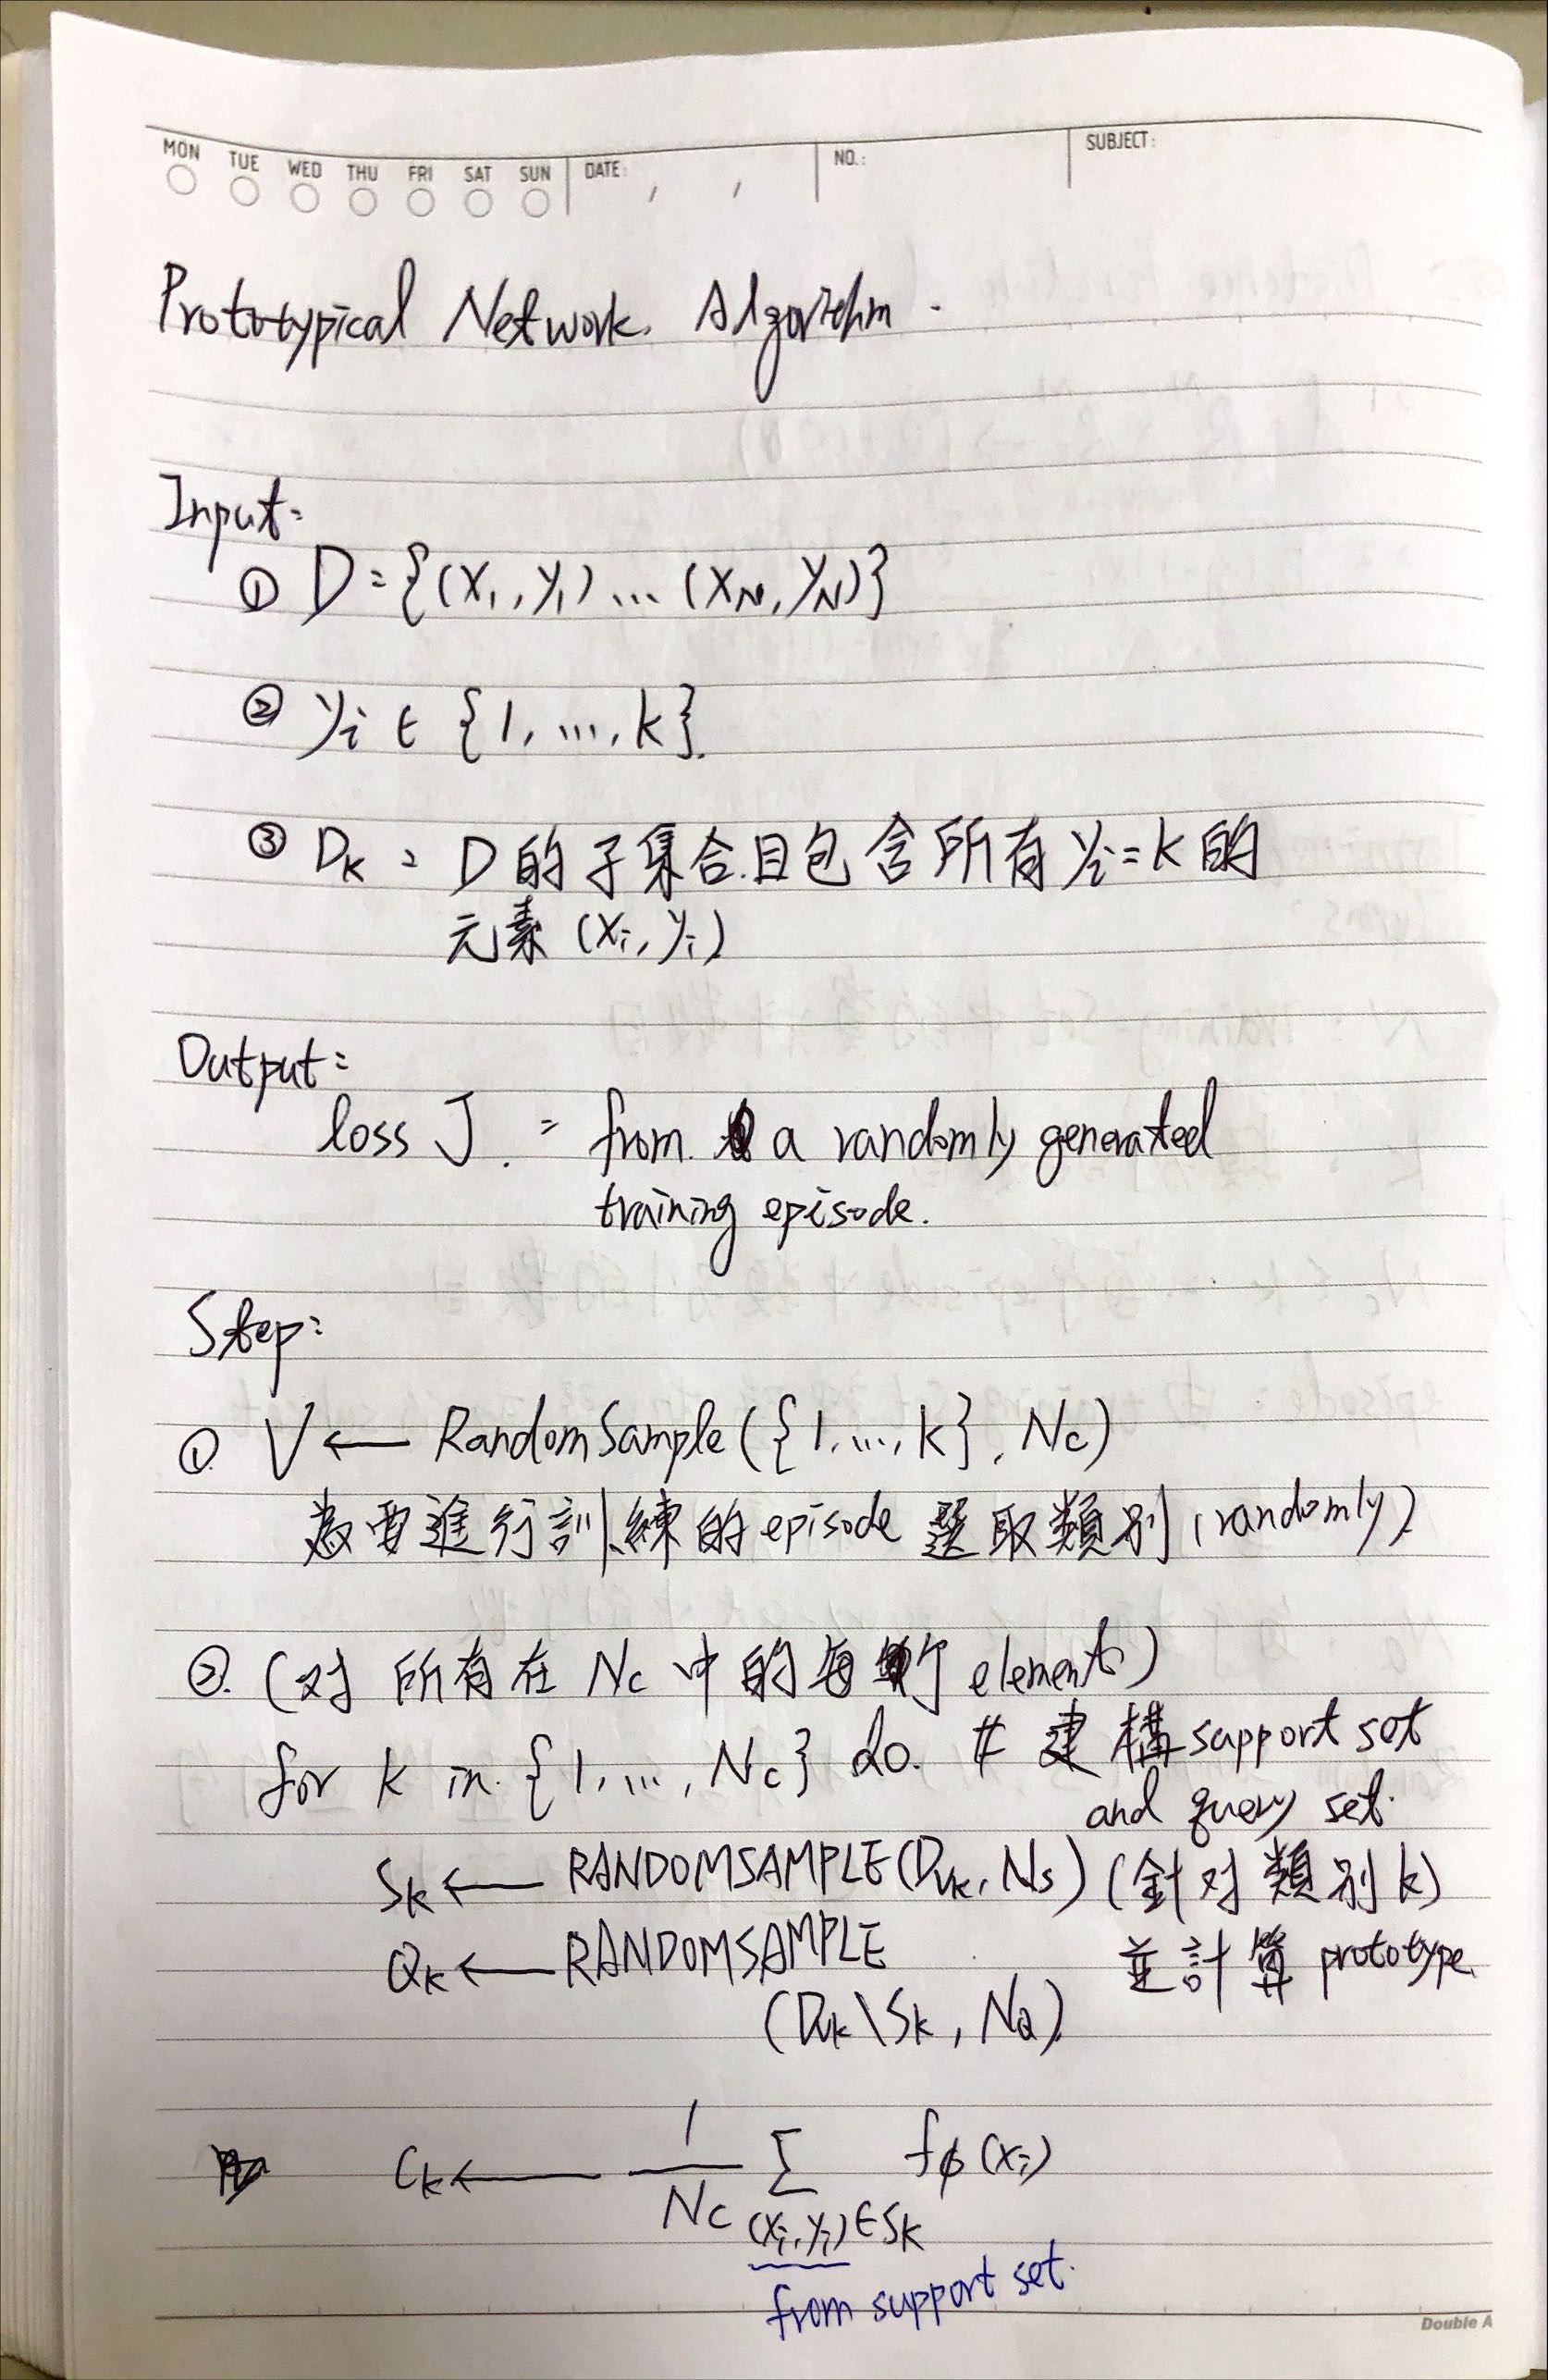 MON TUE WED THU FRI SAT SUN DATE: / / NO.: SUBJECT:
Prototypical Network. Algorithm.
Input:
① D = {(x₁, y₁) ... (x_N, y_N)}
② yᵢ ∈ {1, ..., k}.
③ D_k : D 的子集合.且包含所有 yᵢ = k 的
元素 (xᵢ, yᵢ)
Output:
loss J. = from a randomly generated
training episode.
Step:
①. V ← RandomSample({1, ..., k}, N_c)
為要進行訓練的 episode 選取類別 (randomly)
②. (对所有在 N_c 中的每个 elements)
for k in {1, ..., N_c} do. # 建構 support set
and query set.
S_k ← RANDOMSAMPLE(D_vk, N_s) (針对類別 k)
Q_k ← RANDOMSAMPLE 並計算 prototype.
(D_vk \ S_k, N_Q)
C_k ← 1/N_c Σ_{(xᵢ, yᵢ) ∈ S_k} f_ϕ(xᵢ)
from support set.
Double A